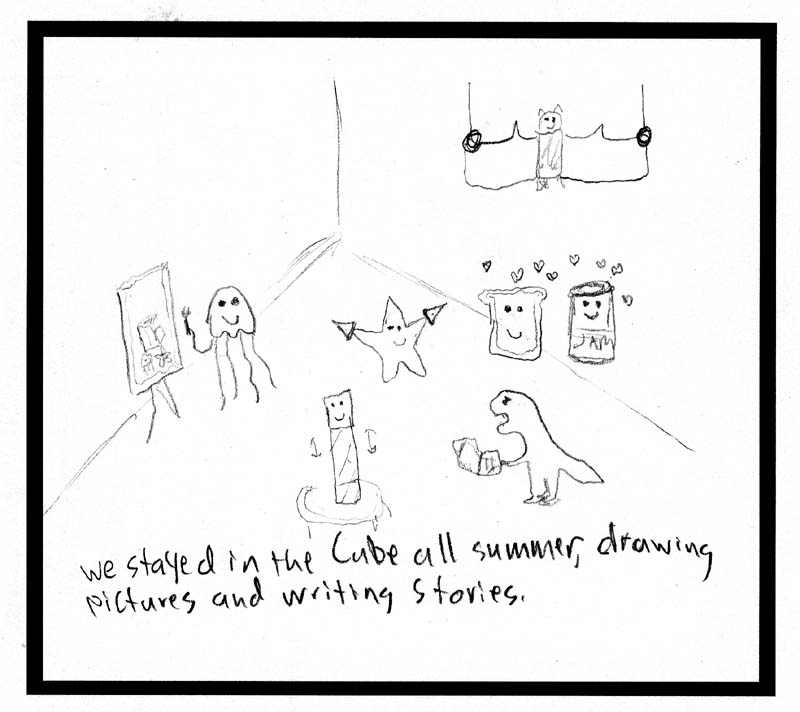 JAM
we stayed in the Cube all summer, drawing
pictures and writing stories.